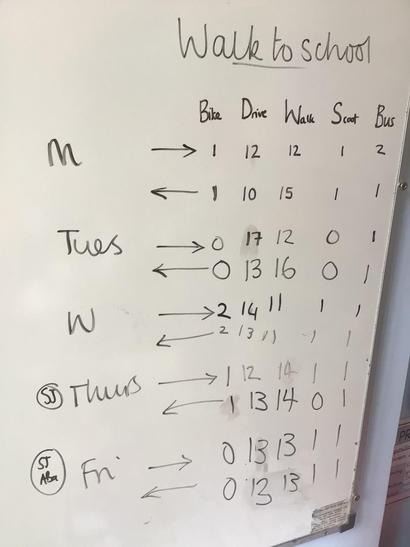 Walk to school
Bike Drive Walk Scoot Bus
M → 1 12 12 1 2
← 1 10 15 1 1
Tues → 0 17 12 0 1
← 0 13 16 0 1
W → 2 14 11 1 1
← 2 13 11 1 1
SJ Thurs → 1 12 14 1 1
← 1 13 14 0 1
SJ Fri → 0 13 13 1 1
← 0 13 13 1 1